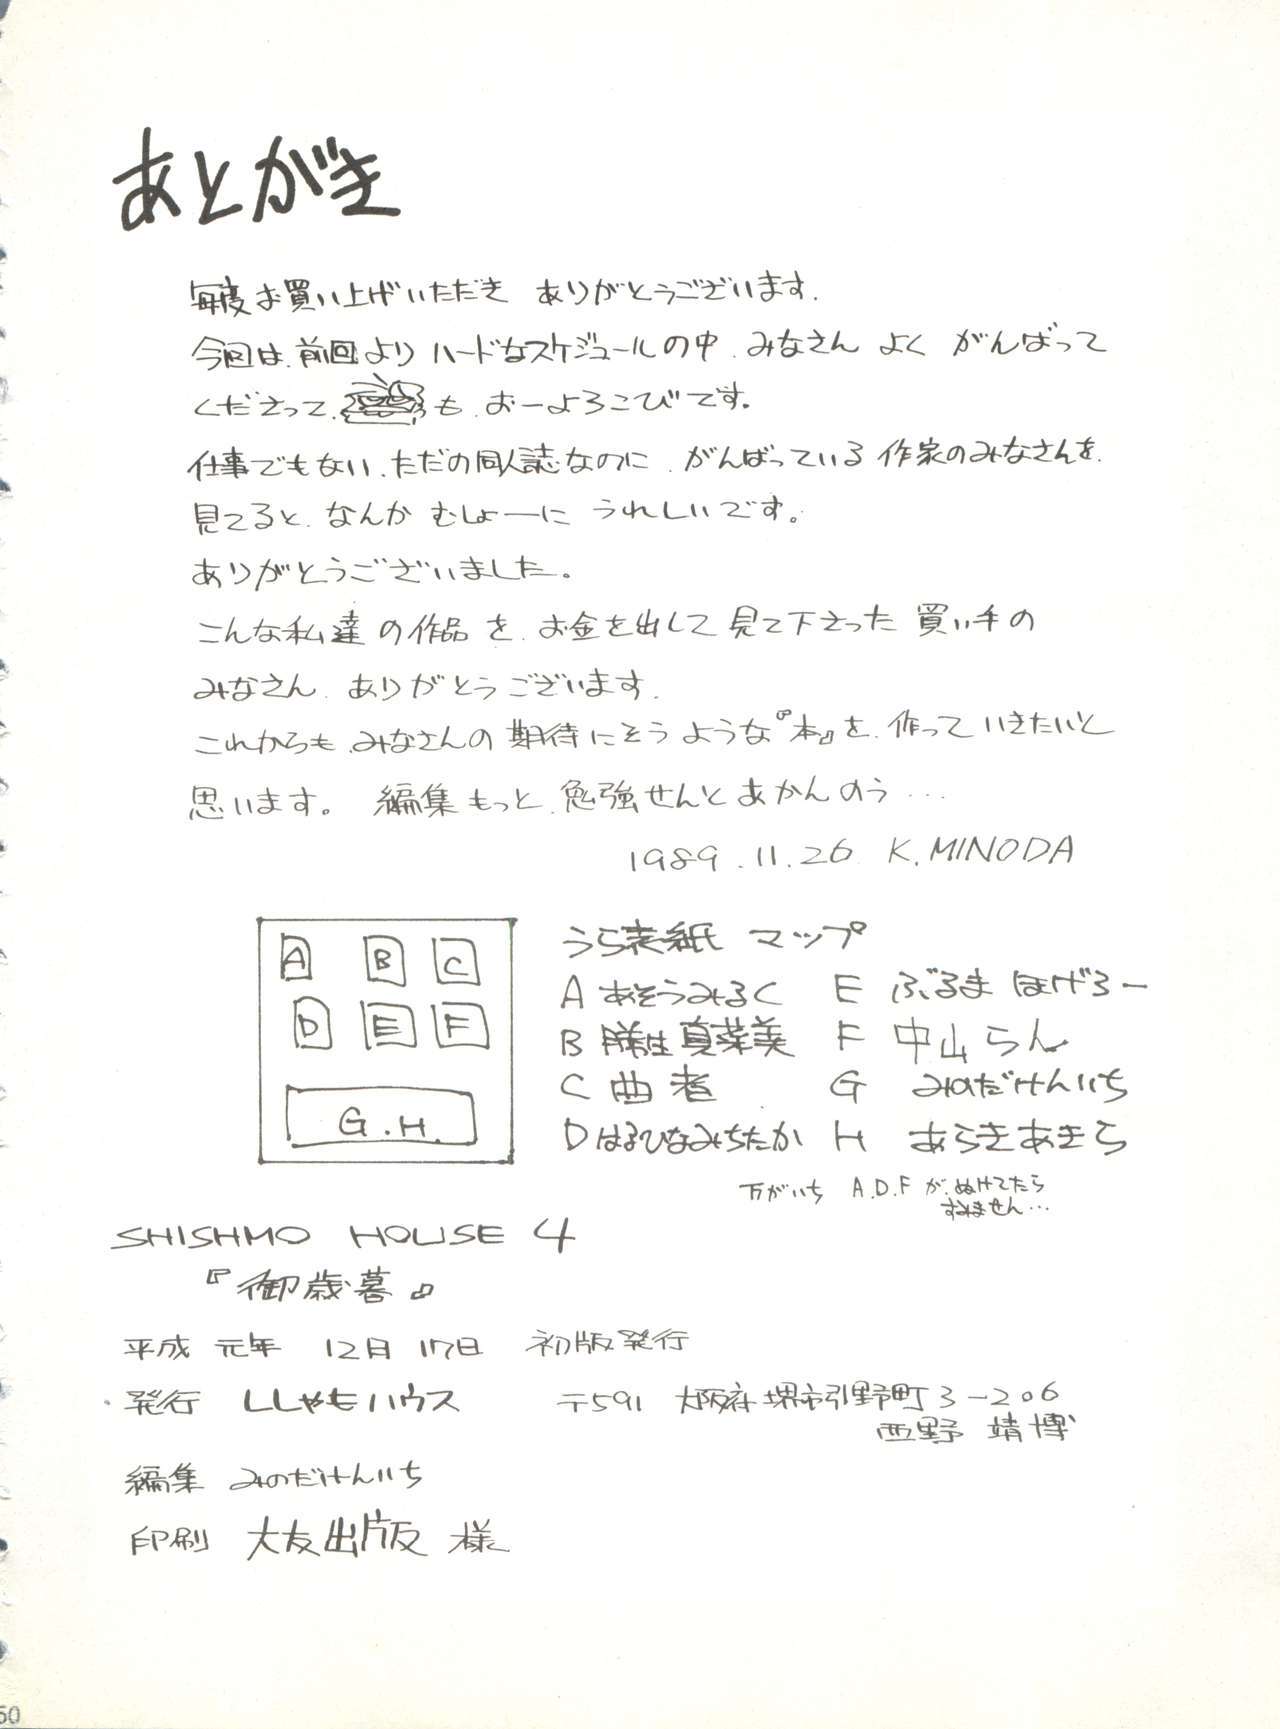 あとがき
毎度お買い上げいただき ありがとうございます.
今回は、前回より ハードなスケジュールの中、みなさん よく がんばって
くださって、も、おーよろこびです。
仕事でもない、ただの同人誌なのに、がんばっている 作家のみなさんを、
見てると、なんか むしょーに うれしいです。
ありがとうございました。
こんな私達の作品を、お金を出して見て下さった 買い手の
みなさん、ありがとうございます.
これからも、みなさんの期待にそうような『本』を、作っていきたいと
思います。 編集もっと、勉強せんとあかんのう…
1989.11.26 K.MINODA
うら表紙 マップ
A B C
D E F
G.H.
A あそうみるく E ぶるま ほげろー
B 勝生真菜美 F 中山らん
C 曲者 G みのだけんいち
D はるひなみちたか H あらきあきら
万がいち A.D.F が、ぬけてたら
すみません…
SHISHMO HOUSE 4
『御歳暮』
平成 元年 12月 17日 初版発行
発行 ししゃもハウス 〒591 大阪府堺市引野町3-206
西野 靖博
編集 みのだけんいち
印刷 大友出版 様
50